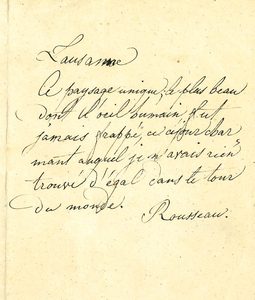 Lausanne
Ce paysage unique, le plus beau
dont l'œil humain fut
jamais frappé, ce séjour char
mant auquel je n'avais rien
trouvé d'égal dans le tour
du monde.
Rousseau.